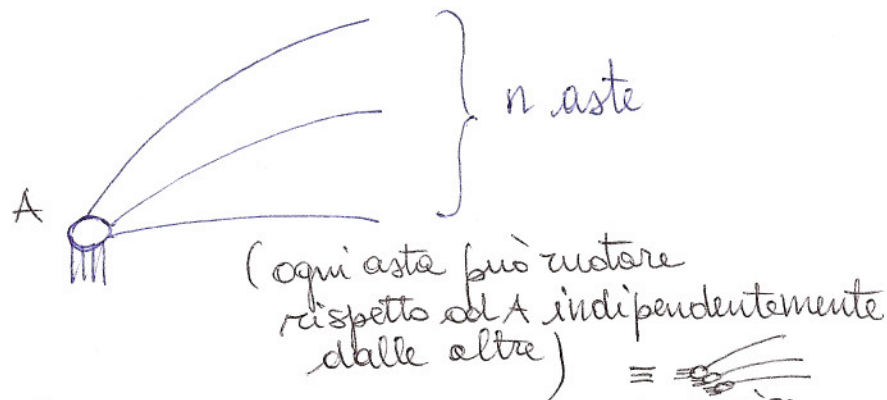 n aste
A
(ogni asta può ruotare
rispetto ad A indipendentemente
dalle altre)
≡